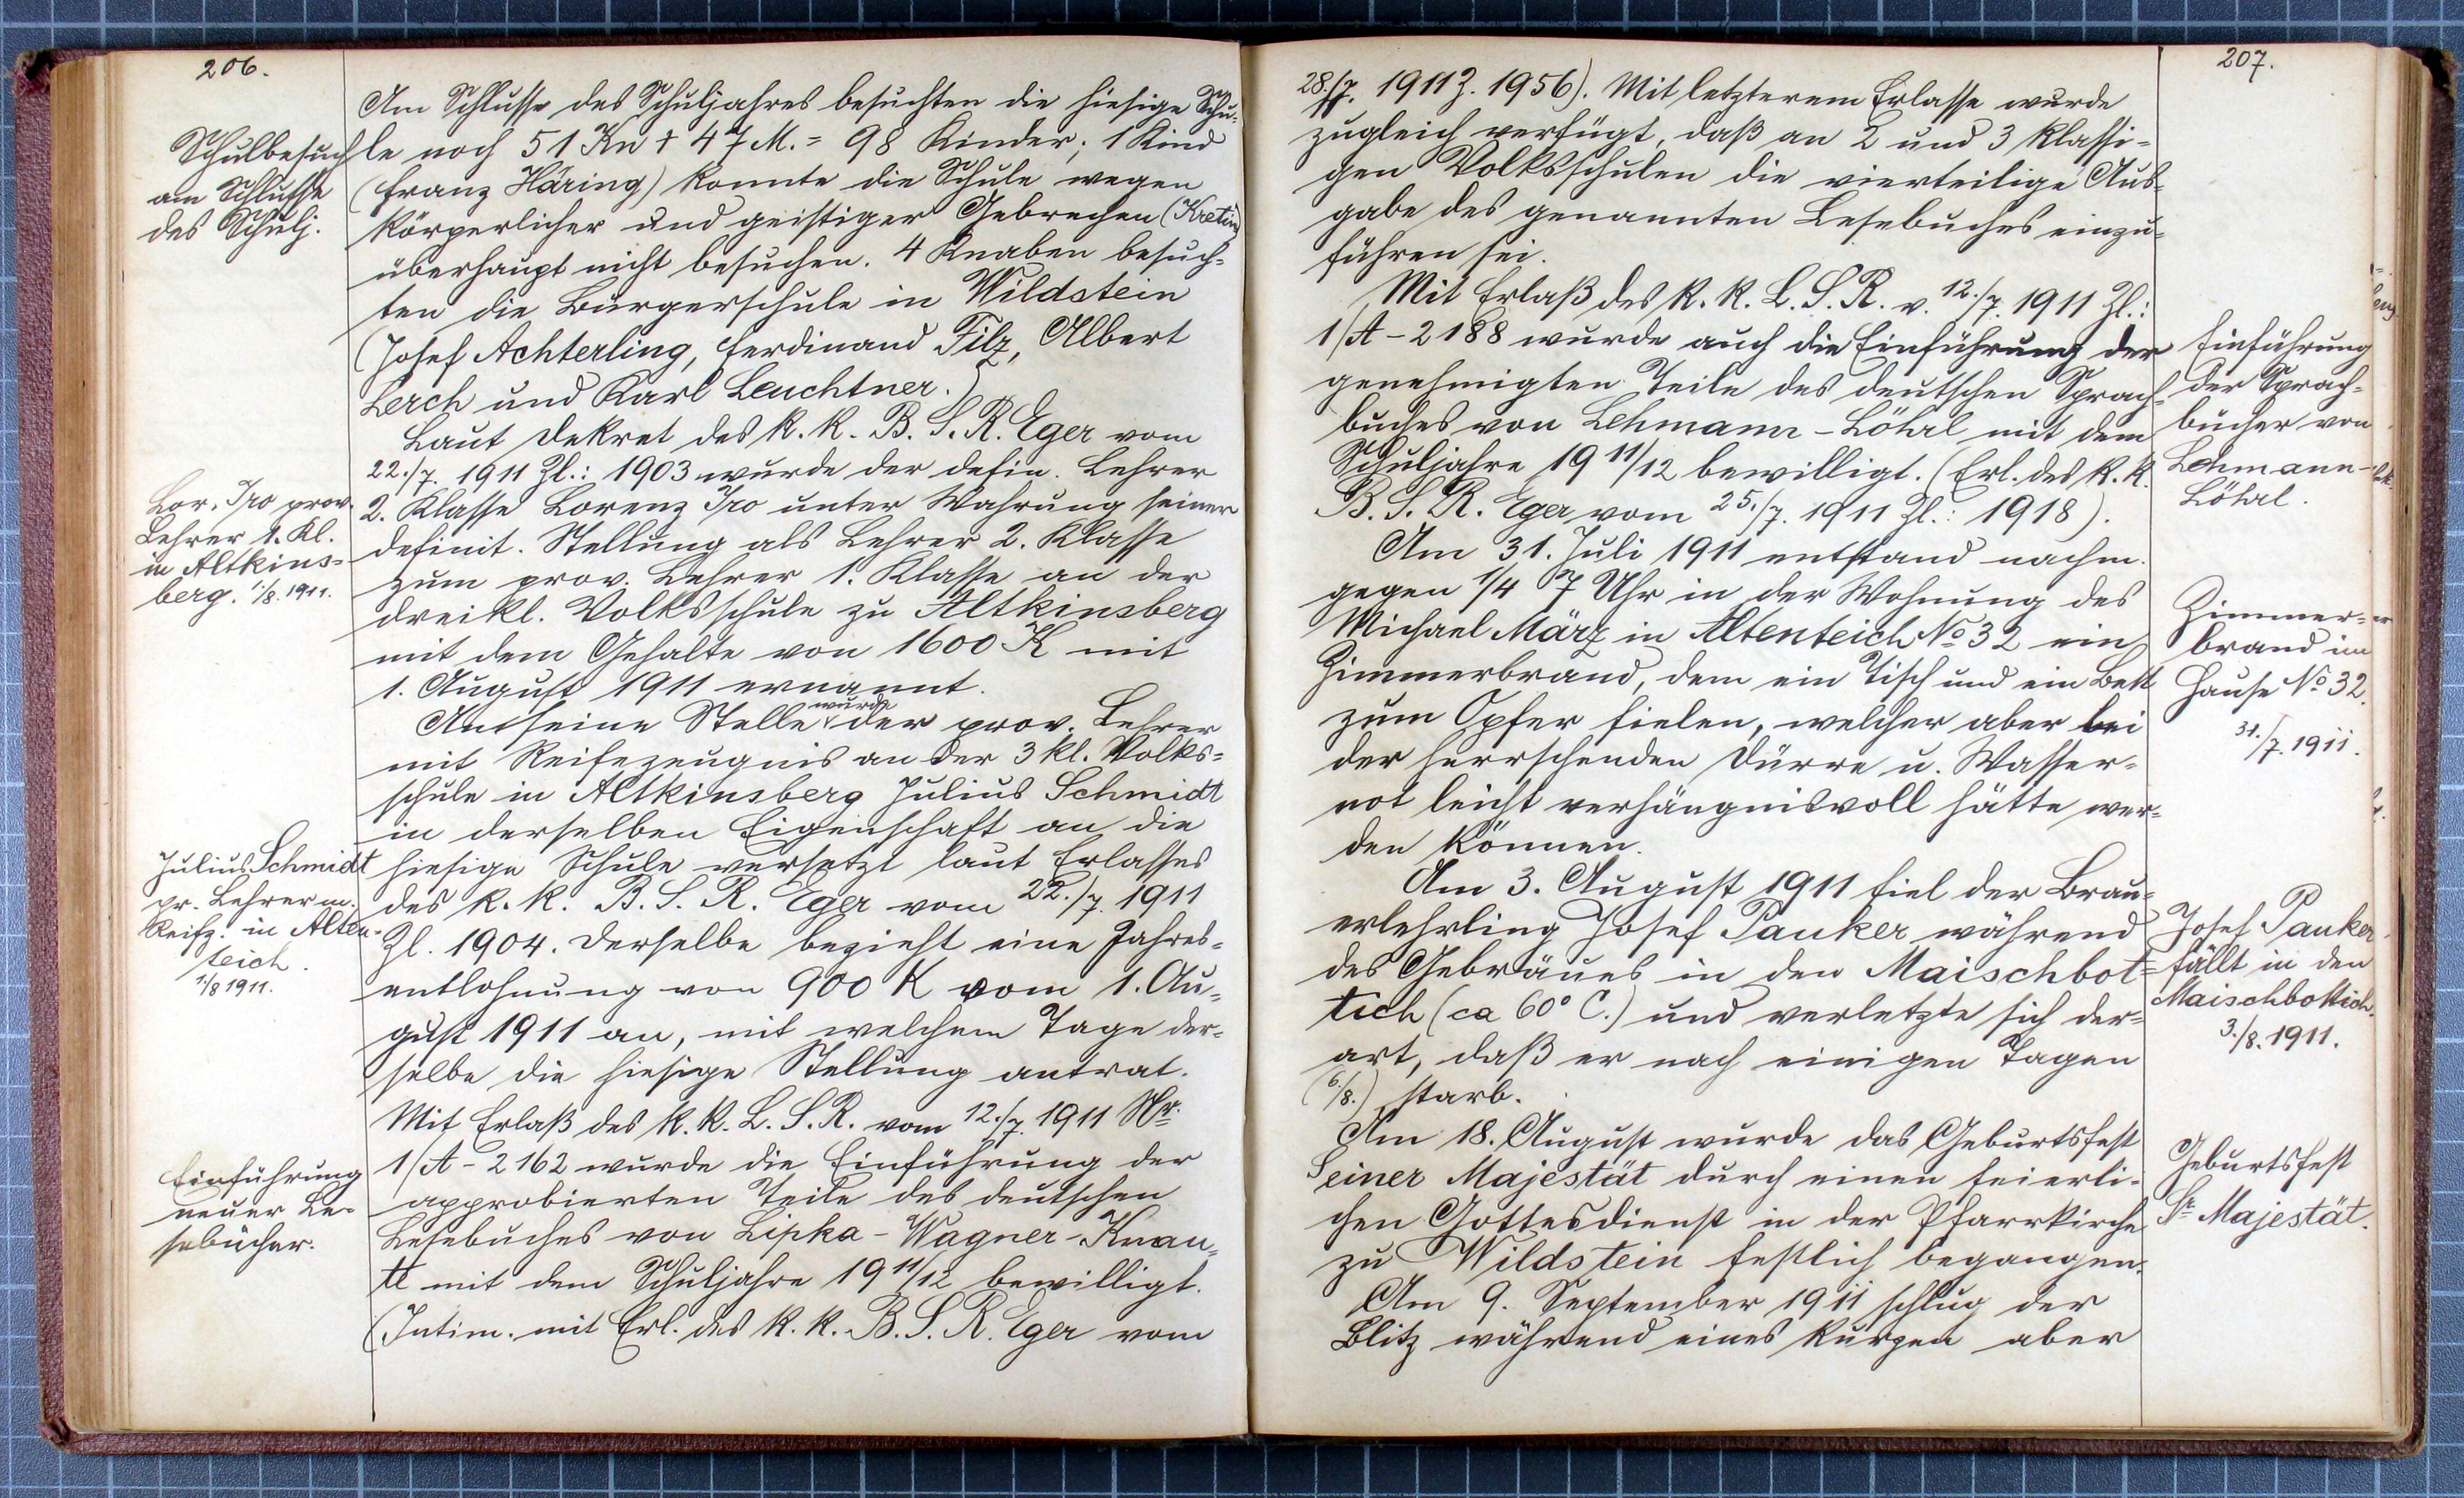 206.
Am Schlusse des Schuljahres besuchten die hiesige Schu-
le noch 51 Kn + 47 M. = 98 Kinder; 1 Kind
(Franz Häring) konnte die Schule wegen
körperlicher und geistiger Gebrechen (Kretin)
überhaupt nicht besuchen. 4 Knaben besuch-
ten die Bürgerschule in Wildstein
(Josef Achterling, Ferdinand Filz, Albert
Lerch und Karl Leuchtner.)
Laut Dekret des k. k. B. S. R. Eger vom
22./7. 1911 Zl.: 1903 wurde der defin. Lehrer
2. Klasse Lorenz Iro unter Wahrung seiner
definit. Stellung als Lehrer 2. Klasse
zum prov. Lehrer 1. Klasse an der
dreikl. Volksschule zu Altkinsberg
mit dem Gehalte von 1600 K mit
1. August 1911 ernannt.
An seine Stelle wurde der prov. Lehrer
mit Reifezeugnis an der 3 kl. Volks-
schule in Altkinsberg Julius Schmidt
in derselben Eigenschaft an die
hiesige Schule versetzt laut Erlasses
des k. k. B. S. R. Eger vom 22./7. 1911
Zl. 1904. Derselbe bezieht eine Jahres-
entlohnung von 900 K vom 1. Au-
gust 1911 an, mit welchem Tage der-
selbe die hiesige Stellung antrat.
Mit Erlaß des k. k. L. S. R. vom 12./7. 1911 Nr.
1/A - 2162 wurde die Einführung der
approbierten Teile des deutschen
Lesebuches von Lipka - Wagner - Knau-
tl mit dem Schuljahre 1911/12 bewilligt.
(Intim. mit Erl. des k. k. B. S. R. Eger vom
Schulbesuch
am Schlusse
des Schulj.
Lor. Iro prov.
Lehrer 1. Kl.
in Altkins-
berg. 1./8. 1911.
Julius Schmidt
pr. Lehrer m.
Reifz. in Alten-
teich.
1./8 1911.
Einführung
neuer Le-
sebücher.
207.
28./7. 1911 Z. 1956). Mit letzterem Erlasse wurde
zugleich verfügt, daß an 2 und 3 klassi-
gen Volksschulen die vierteilige Aus-
gabe des genannten Lesebuches einzu-
führen sei.
Mit Erlaß des k. k. L. S. R. v. 12./7. 1911 Zl.:
1/A - 2188 wurde auch die Einführung der
genehmigten Teile des deutschen Sprach-
buches von Lehmann - Löhrl mit dem
Schuljahre 1911/12 bewilligt. (Erl. des k. k.
B. S. R. Eger vom 25./7. 1911 Zl.: 1918).
Am 31. Juli 1911 entstand nachm.
gegen 1/4 7 Uhr in der Wohnung des
Michael März in Altenteich No 32 ein
Zimmerbrand, dem ein Tisch und ein Bett
zum Opfer fielen, welcher aber bei
der herrschenden Dürre u. Wasser-
not leicht verhängnisvoll hätte wer-
den können.
Am 3. August 1911 fiel der Brau-
erlehrling Josef Pauker während
des Gebräues in den Maischbot-
tich (ca 60° C.) und verletzte sich der-
art, daß er nach einigen Tagen
(6./8.) starb.
Am 18. August wurde das Geburtsfest
Seiner Majestät durch einen feierli-
chen Gottesdienst in der Pfarrkirche
zu Wildstein festlich begangen.
Am 9. September 1911 schlug der
Blitz während eines kurzen aber
Einführung
der Sprach-
bücher von
Lehmann -
Löhrl.
Zimmer-
brand im
Hause No 32.
31./7. 1911.
Josef Pauker
fällt in den
Maischbottich.
3./8. 1911.
Geburtsfest
Sr Majestät.